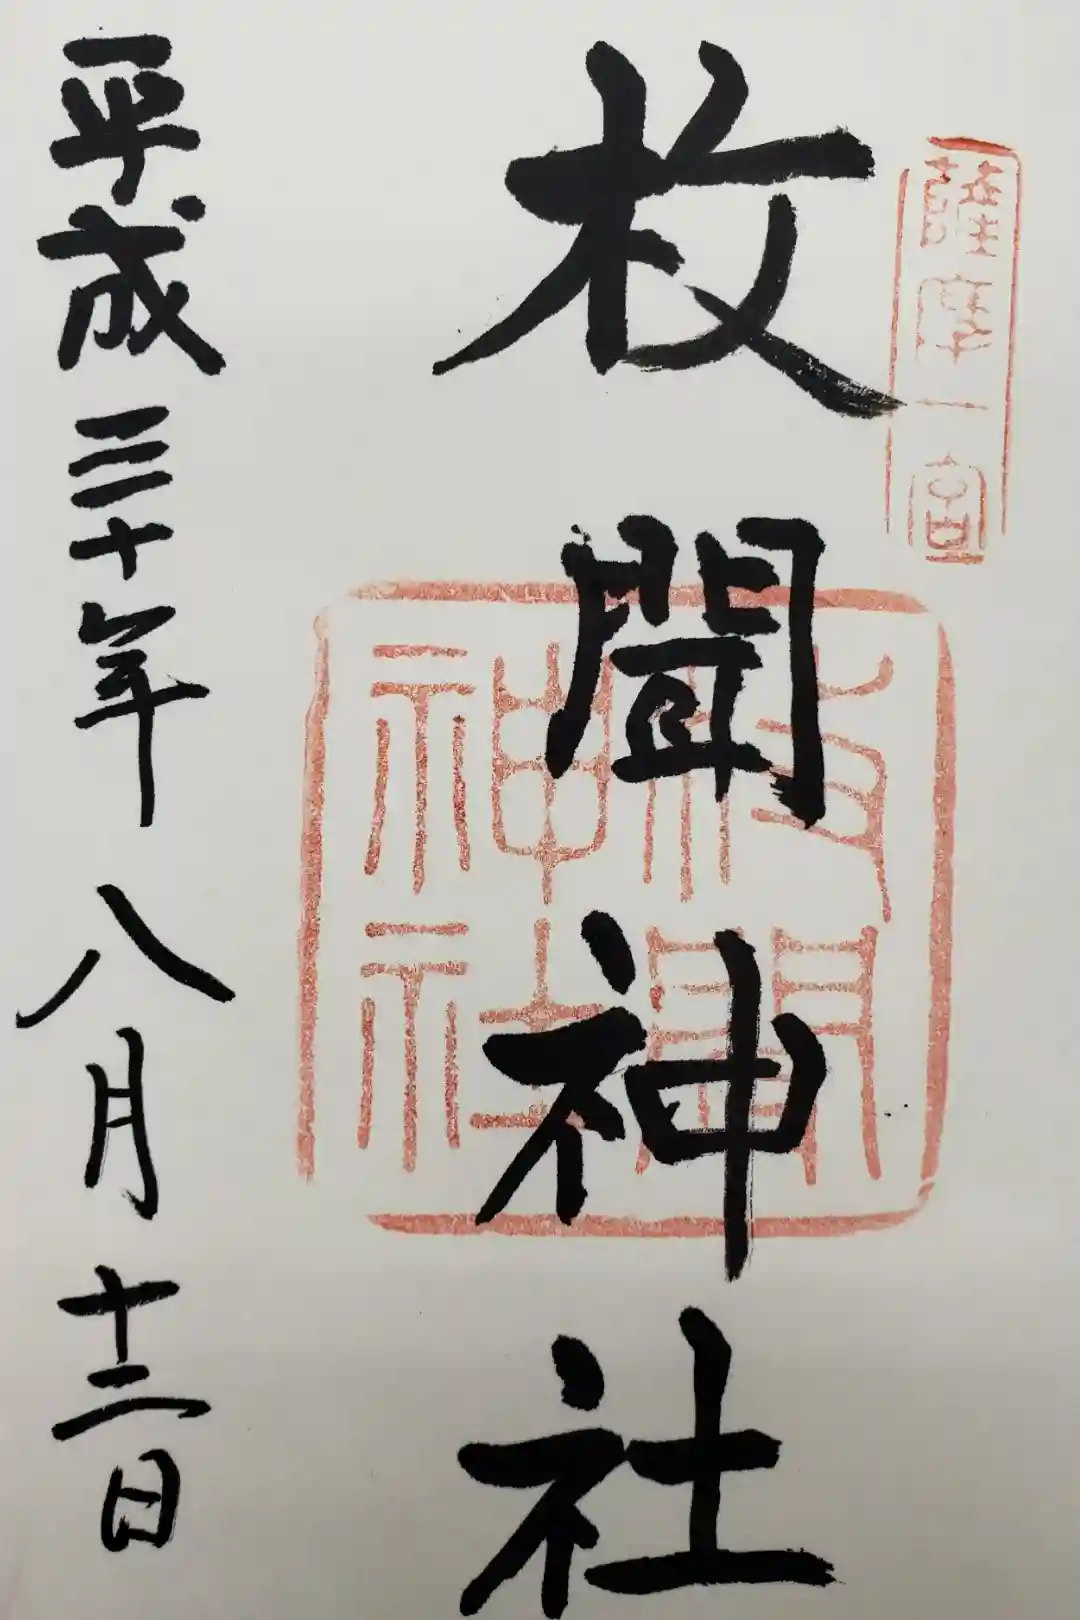 薩摩一宮
枚聞神社
枚聞神社
平成三十年八月十二日